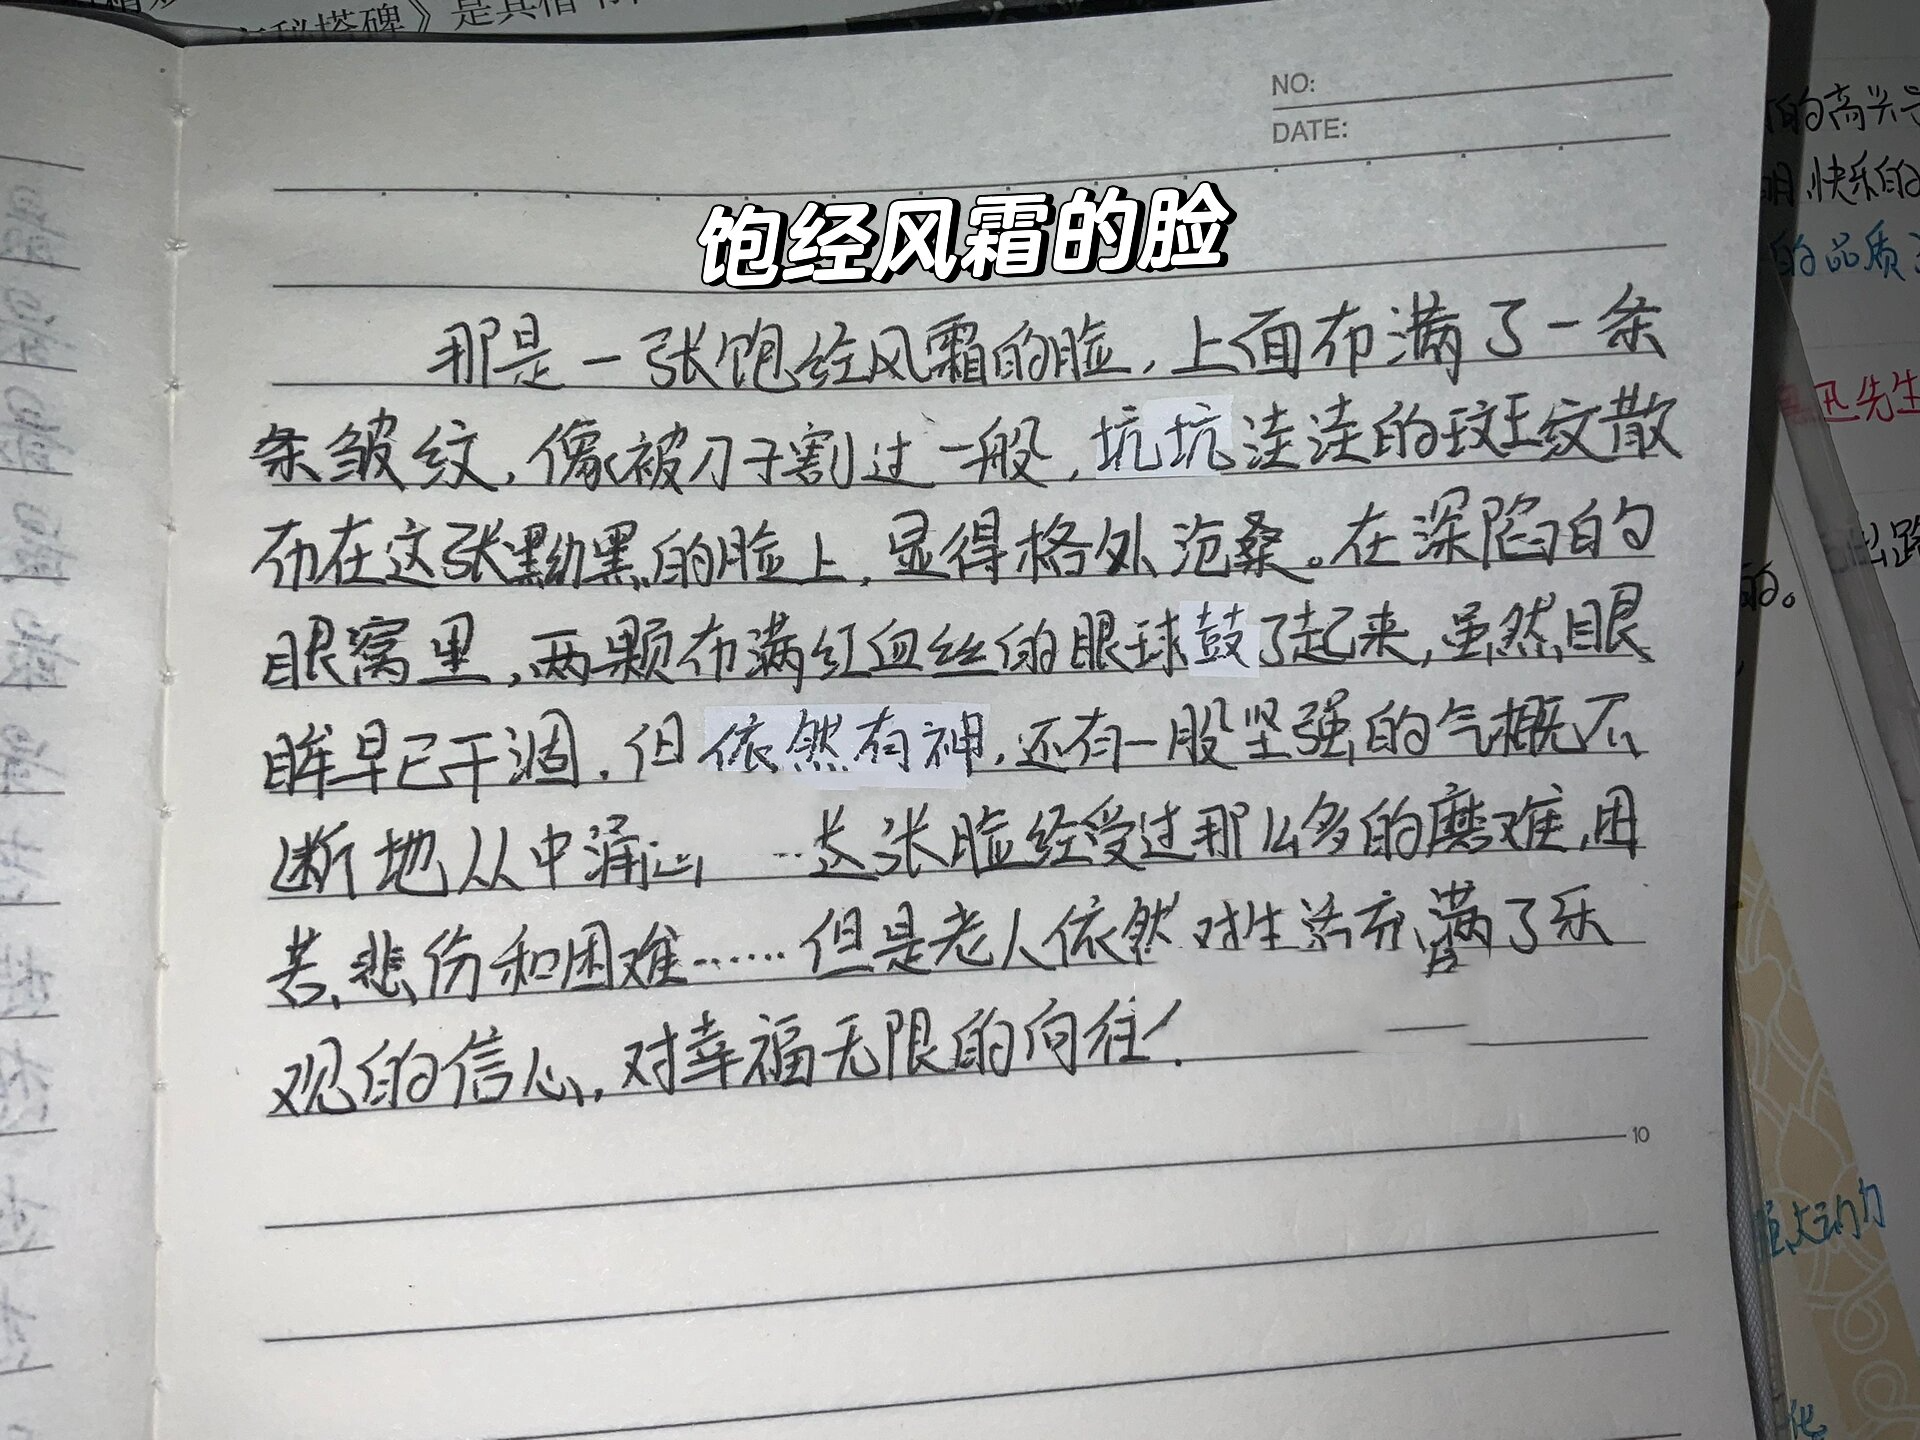 秘塔碑》是其楷书
NO:
DATE:
饱经风霜的脸
那是一张饱经风霜的脸，上面布满了一条
条皱纹，像被刀子割过一般，坑坑洼洼的斑纹散
布在这张黝黑的脸上，显得格外沧桑。在深陷的
眼窝里，两颗布满红血丝的眼球鼓了起来，虽然眼
眸早已干涸，但依然有神，还有一股坚强的气概不
断地从中涌出 这张脸经受过那么多的磨难，困
苦、悲伤和困难……但是老人依然对生活充满了乐
观的信心，对幸福无限的向往！
10
的高头
快乐的
的品质
迅先生
出路
的。
大动力
化